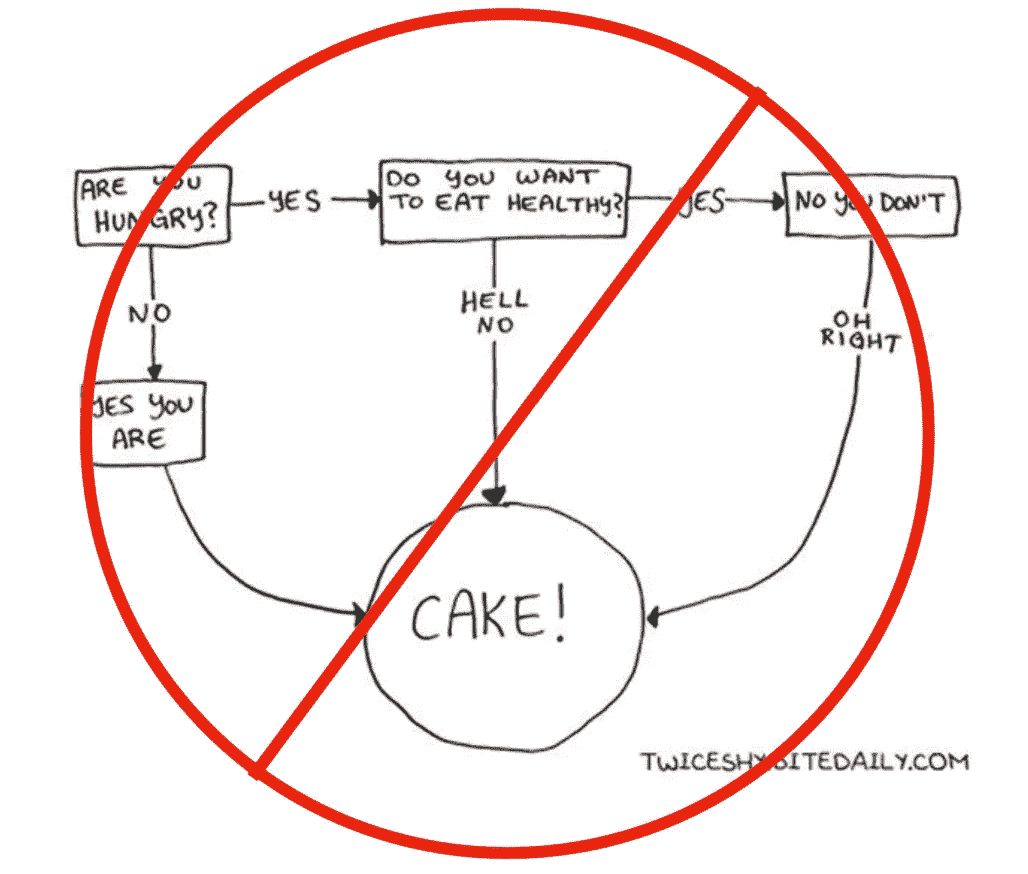 ARE YOU
HUNGRY?
YES
DO YOU WANT
TO EAT HEALTHY?
YES
NO YOU DON'T
NO
HELL
NO
OH
RIGHT
YES YOU
ARE
CAKE!
TWICESHYBITEDAILY.COM